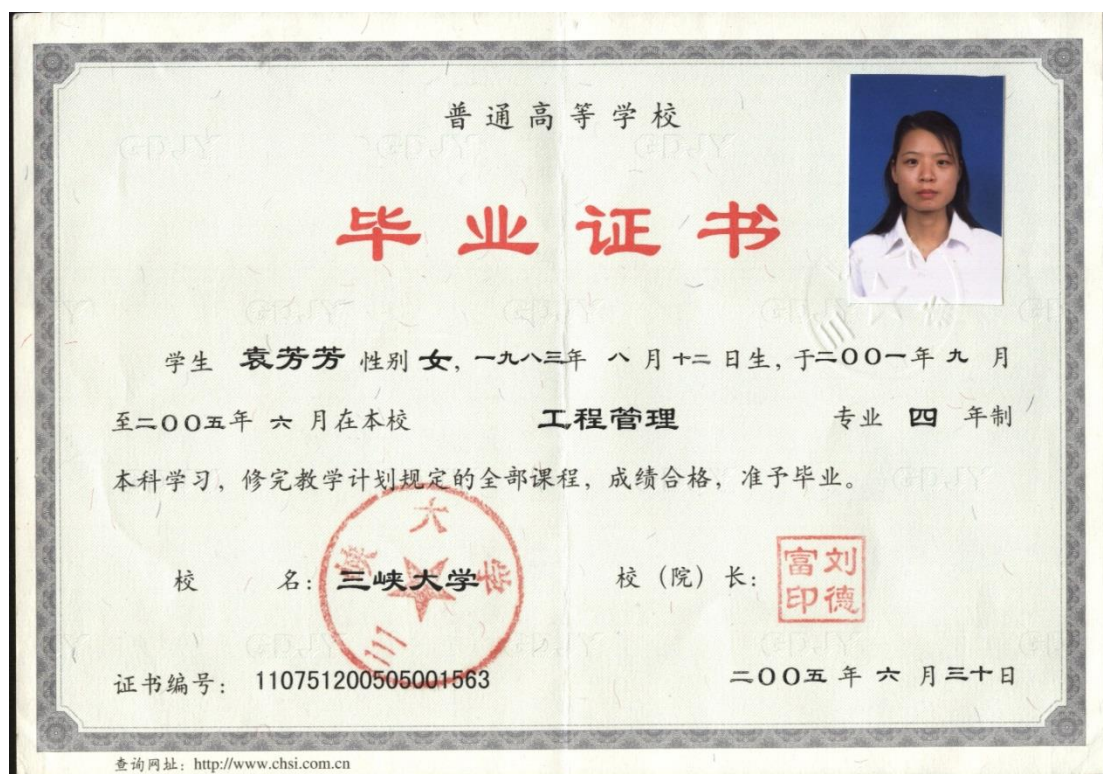 普通高等学校
毕业证书
学生 袁芳芳 性别 女, 一九八三年 八 月 十二 日生, 于二00一年 九 月
至二00五年 六 月在本校 工程管理 专业 四 年制
本科学习, 修完教学计划规定的全部课程, 成绩合格, 准予毕业。
三峡大学
校 名: 三峡大学 校 (院) 长: 刘德富印
证书编号: 110751200505001563 二00五 年 六 月 三十 日
查询网址: http://www.chsi.com.cn